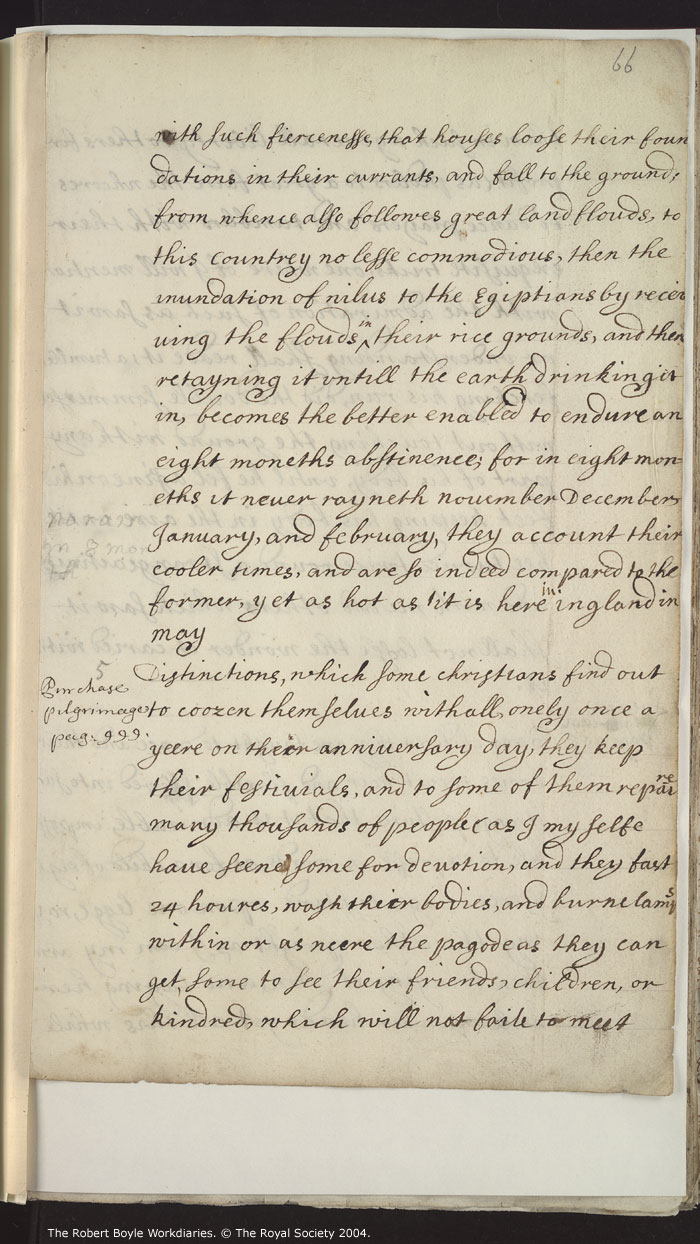 66
with such fiercenesse, that houses loose their foun
dations in their currants, and fall to the ground;
from whence also followes great landflouds, to
this Countrey no lesse commodious, then the
inundation of nilus to the Egiptians by recei
uing the flouds in their rice grounds, and then
retayning it vntill the earth drinking it
in, becomes the better enabled to endure an
eight moneths abstinence; for in eight mon
eths it never rayneth november December
January, and february, they account their
cooler times, and are so indeed compared to the
former, yet as hot as it is here in ingland in
may
5
Purchase
pilgrimage
pag: 999.
Distinctions, which some christians find out
to coozen themselues withall, onely once a
yeere on their anniuersary day, they keep
their festiuials, and to some of them repair
many thousands of people (as I my selfe
haue seene) some for devotion, and they fast
24 houres, wash their bodies, and burne lamps
within or as neere the pagodeas they can
get, some to see their friends, children, or
kindred, which will not faile to meet
The Robert Boyle Workdiaries. © The Royal Society 2004.